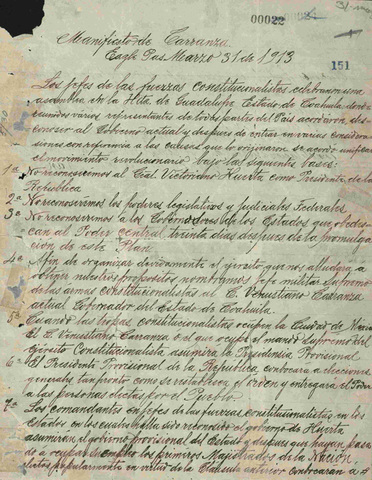 00022
31-
151
Manifiesto de Carranza.
Eagle Pas Marzo 31 de 1913
Los jefes de las fuerzas constitucionalistas celebraron una
asamblea en la Hda de Guadalupe Estado de Coahuila donde
reunidos varios representantes de todas partes del Pais acordaron, des-
conocer al Gobierno actual y despues de entrar en varias considera-
siones con referencia a las causas que lo originaron se acordó unificar
el movimiento revolucionario bajo las siguientes bases:
1a No reconocemos al Gral Victoriano Huerta como Presidente de la
Republica
2a No reconosemos los poderes legislativos y Judiciales Federales.
3a No reconosemos a los Gobernadores de los Estados que obedes-
can al Poder central, treinta dias despues de la promulga-
cion de este Plan.
4a Afin de organizar devidamente el ejercito que nos alludara a
obtener nuestros propositos nombramos Jefe militar Supremo
de las armas constitucionalistas al C. Venustiano Carranza
actual Gobernador del Estado de Coahuila.
5a Cuando las tropas constitucionalistas ocupen la Ciudad de Mexico
El C. Venustiano Carranza o el que ocupe el mando Supremo del
Ejército Constitucionalista asumira la Presidensia Provisional
6a El Presidente Provisional de la Republica, conbocara a elecciones
generales tan pronto como se restablesca el orden y entregará el Poder
a las personas electas por el Pueblo.
7a Los comandantes en jefes de las fuerzas constitucionalistas, en los
Estados en los cuales halla sido reconosido el gobierno de Huerta
asumiran el gobierno provisional del Estado y despues que hayan pasa-
do a ocupar su empleo los primeros Magistrados de la Nación,
electos popularmente en virtud de la Clausula anterior conbocaran á e-